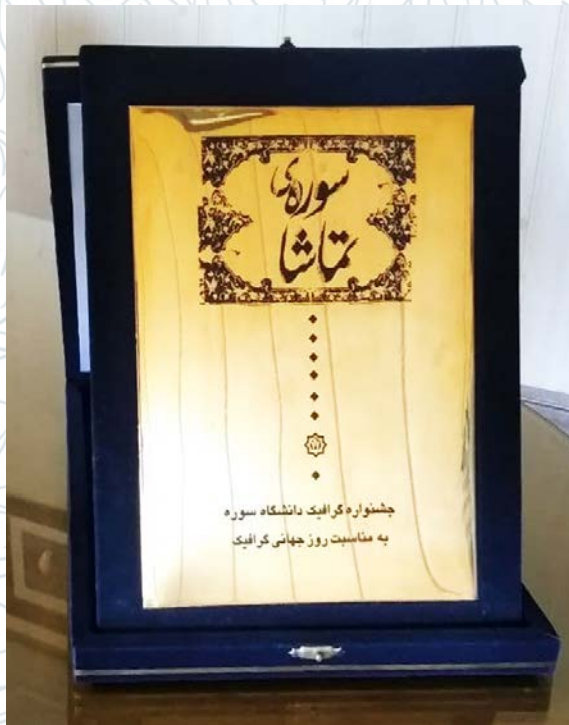 سوره‌ی
تماشا
جشنواره گرافیک دانشگاه سوره
به مناسبت روز جهانی گرافیک